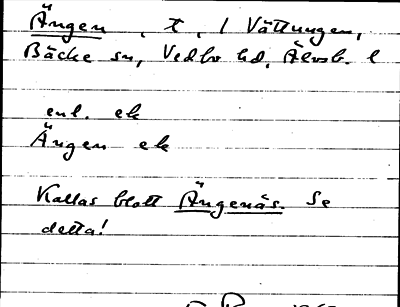 Ängen, t, i Vättungen,
Bäcke sn, Vedbo hd, Älvsb. l
enl. ek
Ängen ek
Kallas blott Ängenäs. Se
detta!